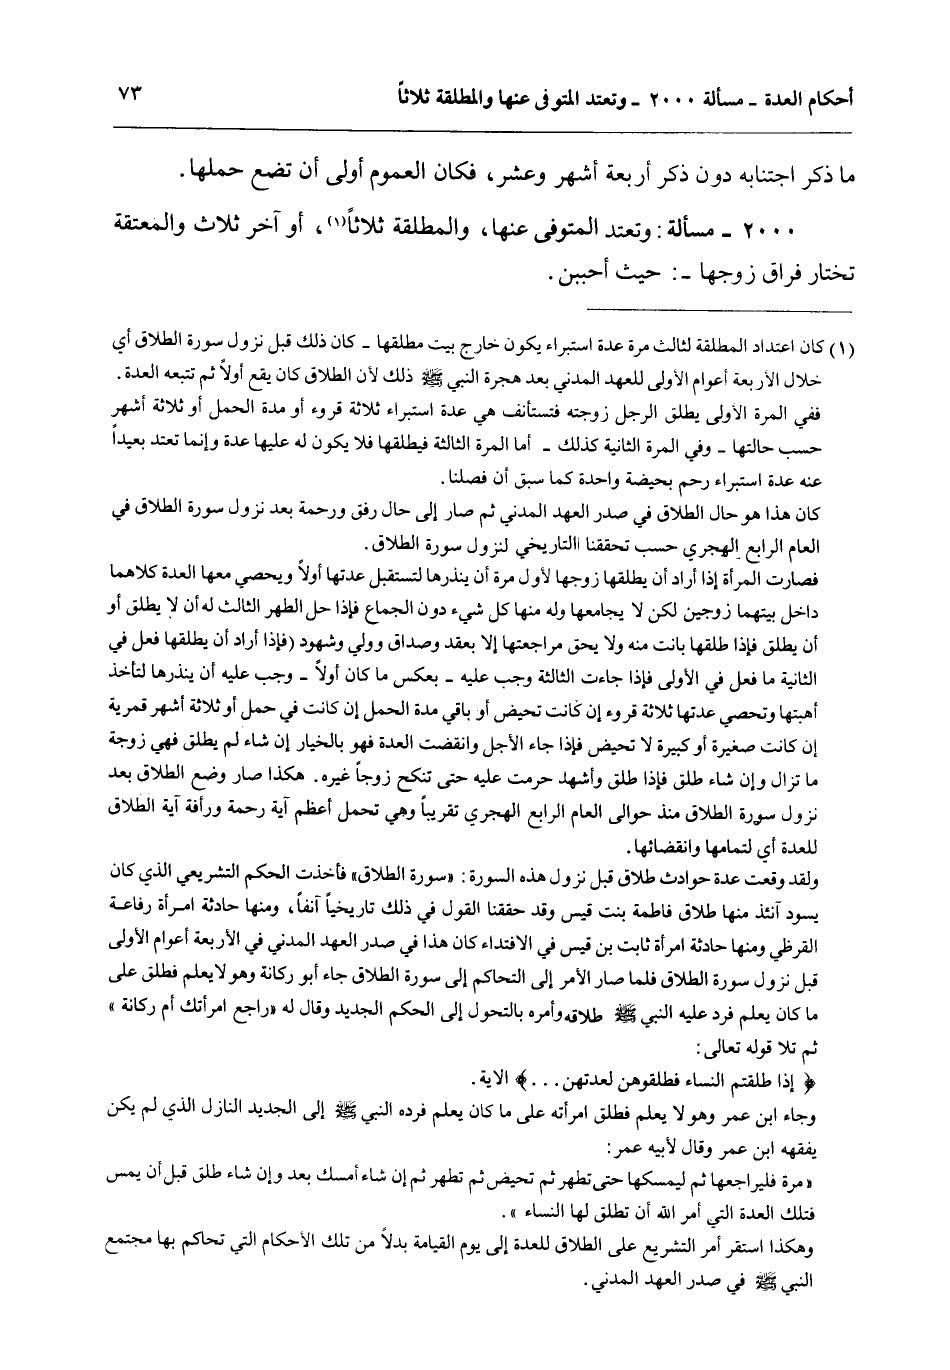 أحكام العدة ـ مسألة ٢٠٠٠ ـ وتعتد المتوفى عنها والمطلقة ثلاثاً ٧٣
ما ذكر اجتنابه دون ذكر أربعة أشهر وعشر، فكان العموم أولى أن تضع حملها.
٢٠٠٠ ـ مسألة: وتعتد المتوفى عنها، والمطلقة ثلاثاً(١)، أو آخر ثلاث والمعتقة
تختار فراق زوجها ـ: حيث أحببن.
(١) كان اعتداد المطلقة لثالث مرة عدة استبراء يكون خارج بيت مطلقها ـ كان ذلك قبل نزول سورة الطلاق أي
خلال الأربعة أعوام الأولى للعهد المدني بعد هجرة النبي ﷺ ذلك لأن الطلاق كان يقع أولاً ثم تتبعه العدة.
ففي المرة الأولى يطلق الرجل زوجته فتستأنف هي عدة استبراء ثلاثة قروء أو مدة الحمل أو ثلاثة أشهر
حسب حالتها ـ وفي المرة الثانية كذلك ـ أما المرة الثالثة فيطلقها فلا يكون له عليها عدة وإنما تعتد بعيداً
عنه عدة استبراء رحم بحيضة واحدة كما سبق أن فصلنا.
كان هذا هو حال الطلاق في صدر العهد المدني ثم صار إلى حال رفق ورحمة بعد نزول سورة الطلاق في
العام الرابع الهجري حسب تحققنا االتاريخي لنزول سورة الطلاق.
فصارت المرأة إذا أراد أن يطلقها زوجها لأول مرة أن ينذرها لتستقبل عدتها أولاً ويحصي معها العدة كلاهما
داخل بيتهما زوجين لكن لا يجامعها وله منها كل شيء دون الجماع فإذا حل الطهر الثالث له أن لا يطلق أو
أن يطلق فإذا طلقها بانت منه ولا يحق مراجعتها إلا بعقد وصداق وولي وشهود (فإذا أراد أن يطلقها فعل في
الثانية ما فعل في الأولى فإذا جاءت الثالثة وجب عليه ـ بعكس ما كان أولاً ـ وجب عليه أن ينذرها لتأخذ
أهبتها وتحصي عدتها ثلاثة قروء إن كانت تحيض أو باقي مدة الحمل إن كانت في حمل أو ثلاثة أشهر قمرية
إن كانت صغيرة أو كبيرة لا تحيض فإذا جاء الأجل وانقضت العدة فهو بالخيار إن شاء لم يطلق فهي زوجة
ما تزال وإن شاء طلق فإذا طلق وأشهد حرمت عليه حتى تنكح زوجاً غيره. هكذا صار وضع الطلاق بعد
نزول سورة الطلاق منذ حوالى العام الرابع الهجري تقريباً وهي تحمل أعظم آية رحمة ورأفة آية الطلاق
للعدة أي لتمامها وانقضائها.
ولقد وقعت عدة حوادث طلاق قبل نزول هذه السورة: «سورة الطلاق» فأخذت الحكم التشريعي الذي كان
يسود آنئذ منها طلاق فاطمة بنت قيس وقد حققنا القول في ذلك تاريخياً آنفاً، ومنها حادثة امرأة رفاعة
القرظي ومنها حادثة امرأة ثابت بن قيس في الافتداء كان هذا في صدر العهد المدني في الأربعة أعوام الأولى
قبل نزول سورة الطلاق فلما صار الأمر إلى التحاكم إلى سورة الطلاق جاء أبو ركانة وهو لا يعلم فطلق على
ما كان يعلم فرد عليه النبي ﷺ طلاقه وأمره بالتحول إلى الحكم الجديد وقال له «راجع امرأتك أم ركانة»
ثم تلا قوله تعالى:
﴿ إذا طلقتم النساء فطلقوهن لعدتهن . . . ﴾ الاية.
وجاء ابن عمر وهو لا يعلم فطلق امرأته على ما كان يعلم فرده النبي ﷺ إلى الجديد النازل الذي لم يكن
يفقهه ابن عمر وقال لأبيه عمر:
«مرة فليراجعها ثم ليمسكها حتى تطهر ثم تحيض ثم تطهر ثم إن شاء أمسك بعد وإن شاء طلق قبل أن يمس
فتلك العدة التي أمر الله أن تطلق لها النساء».
وهكذا استقر أمر التشريع على الطلاق للعدة إلى يوم القيامة بدلاً من تلك الأحكام التي تحاكم بها مجتمع
النبي ﷺ في صدر العهد المدني.